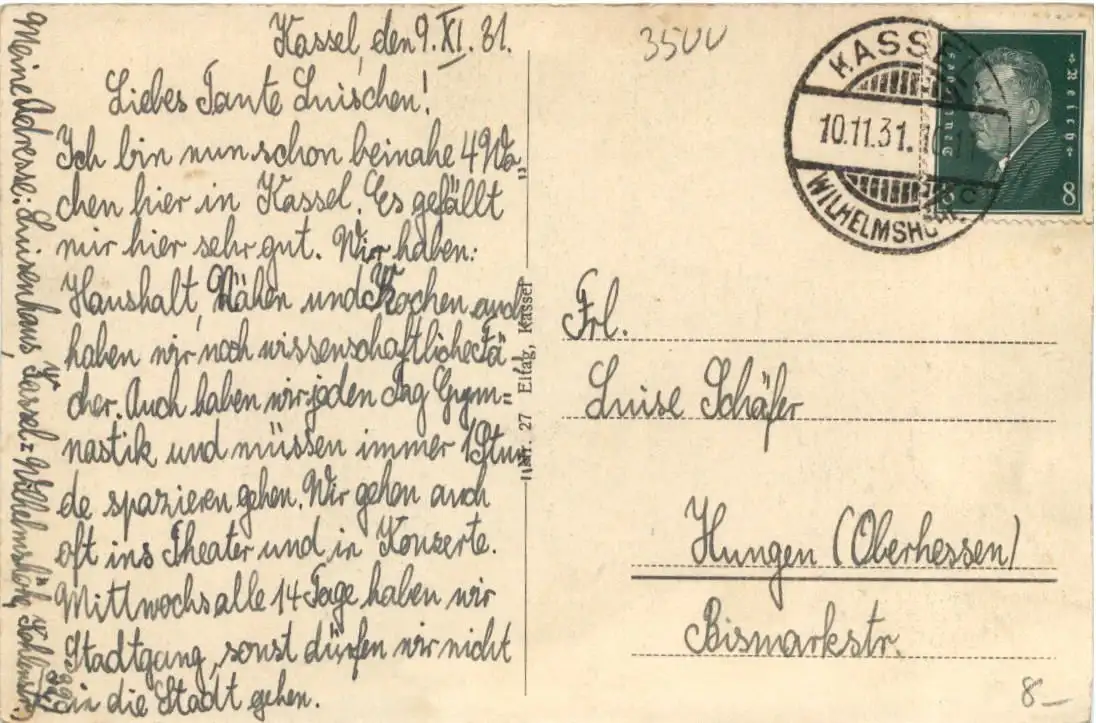 Kassel, den 9. XI. 31.
Liebes Tante Luischen!
Ich bin nun schon beinahe 4 Wo„
chen hier in Kassel. Es gefällt
mir hier sehr gut. Wir haben:
Haushalt, Nähen und Kochen auch
haben wir noch wissenschaftliche Fä
cher. Auch haben wir jeden Tag Gym=
nastik und müssen immer 1 Stun„
de spazieren gehen. Wir gehen auch
oft ins Theater und in Konzerte.
Mittwochs alle 14 Tage haben wir
Stadtgang, sonst dürfen wir nicht
in die Stadt gehen.
Meine Adresse: Luisenhaus, Kassel=Wilhelmshöhe,
Nr. 27 Eltag, Kassel
3500
KASSEL
10.11.31.
WILHELMSHÖHE
C
Deutsches Reich
8
Frl.
Luise Schäfer
Hungen (Oberhessen)
Bismarkstr.
8_